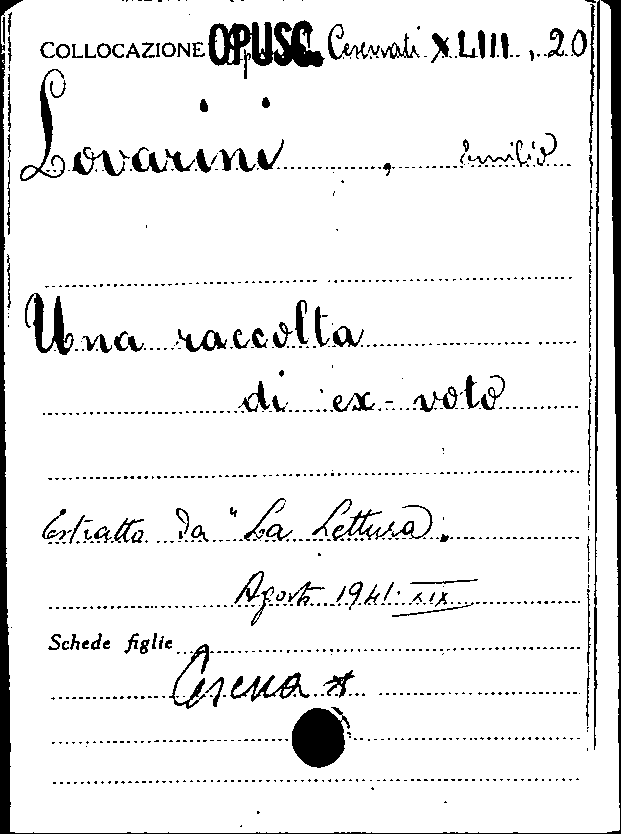 COLLOCAZIONE OPUSC. Cesenati XLIII, 20
Lovarini, Emilio
Una raccolta
di ex-voto
Estratto da "La Lettura".
Agosto 1941. XIX
Schede figlie
Cesena *